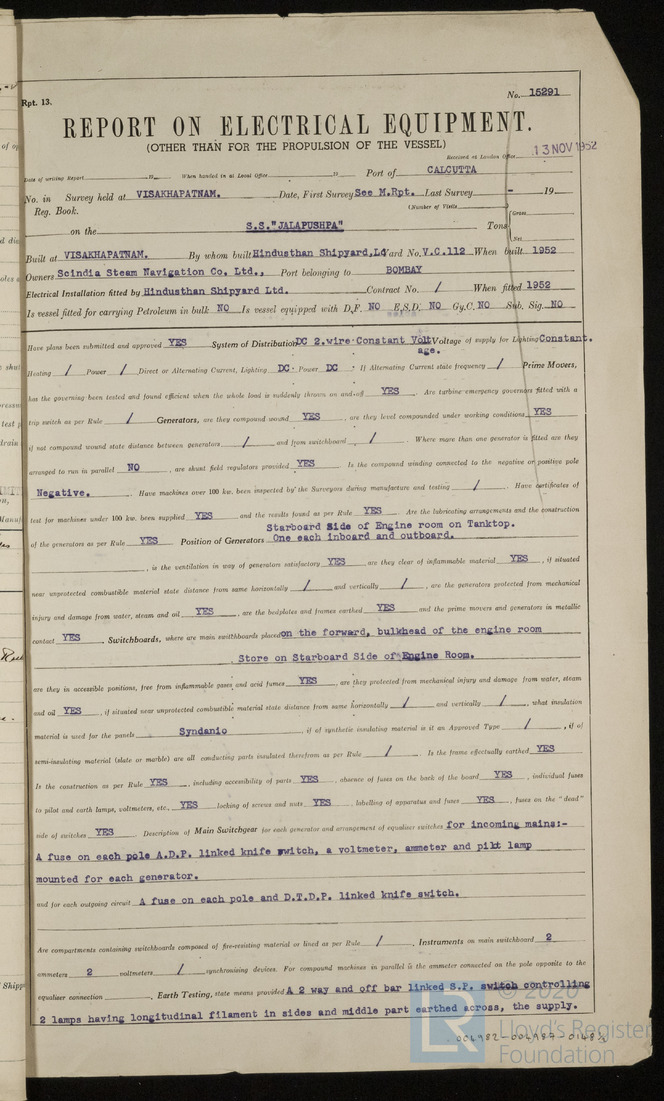 Rpt. 13.
No. 15291
REPORT ON ELECTRICAL EQUIPMENT.
(OTHER THAN FOR THE PROPULSION OF THE VESSEL)
Received at London Office 13 NOV 1952
Date of writing Report 19 When handed in at Local Office 19 Port of CALCUTTA
No. in Survey held at VISAKHAPATNAM. Date, First Survey See M.Rpt. Last Survey - 19
Reg. Book. (Number of Visits
on the S.S."JALAPUSHPA" Tons { Gross
Net
Built at VISAKHAPATNAM. By whom built Hindusthan Shipyard,Ld Yard No. V.C.112 When built 1952
Owners Scindia Steam Navigation Co. Ltd., Port belonging to BOMBAY
Electrical Installation fitted by Hindusthan Shipyard Ltd. Contract No. / When fitted 1952
Is vessel fitted for carrying Petroleum in bulk NO Is vessel equipped with D.F. NO E.S.D. NO Gy.C. NO Sub. Sig. NO
Have plans been submitted and approved YES System of Distribution DC 2.wire Constant Volt Voltage of supply for Lighting Constant.
age.
Heating / Power / Direct or Alternating Current, Lighting DC Power DC If Alternating Current state frequency / Prime Movers,
has the governing been tested and found efficient when the whole load is suddenly thrown on and off YES Are turbine emergency governors fitted with a
trip switch as per Rule / Generators, are they compound wound YES, are they level compounded under working conditions YES
if not compound wound state distance between generators / and from switchboard /. Where more than one generator is fitted are they
arranged to run in parallel NO, are shunt field regulators provided YES Is the compound winding connected to the negative or positive pole
Negative. Have machines over 100 kw. been inspected by the Surveyors during manufacture and testing /. Have certificates of
test for machines under 100 kw. been supplied YES and the results found as per Rule YES Are the lubricating arrangements and the construction
Starboard Side of Engine room on Tanktop.
of the generators as per Rule YES Position of Generators One each inboard and outboard.
, is the ventilation in way of generators satisfactory YES, are they clear of inflammable material YES, if situated
near unprotected combustible material state distance from same horizontally / and vertically /, are the generators protected from mechanical
injury and damage from water, steam and oil YES, are the bedplates and frames earthed YES and the prime movers and generators in metallic
contact YES. Switchboards, where are main switchboards placed on the forward, bulkhead of the engine room
Store on Starboard Side of Engine Room.
are they in accessible positions, free from inflammable gases and acid fumes YES, are they protected from mechanical injury and damage from water, steam
and oil YES, if situated near unprotected combustible material state distance from same horizontally / and vertically /, what insulation
material is used for the panels Syndanio, if of synthetic insulating material is it an Approved Type /, if of
semi-insulating material (slate or marble) are all conducting parts insulated therefrom as per Rule /. Is the frame effectually earthed YES
Is the construction as per Rule YES, including accessibility of parts YES, absence of fuses on the back of the board YES, individual fuses
to pilot and earth lamps, voltmeters, etc. YES locking of screws and nuts YES, labelling of apparatus and fuses YES, fuses on the "dead"
side of switches YES Description of Main Switchgear for each generator and arrangement of equaliser switches for incoming mains:-
A fuse on each pole A.D.P. linked knife switch, a voltmeter, ammeter and pilt lamp
mounted for each generator.
and for each outgoing circuit A fuse on each pole and D.T.D.P. linked knife switch.
Are compartments containing switchboards composed of fire-resisting material or lined as per Rule /. Instruments on main switchboard 2
ammeters 2 voltmeters / synchronising devices. For compound machines in parallel is the ammeter connected on the pole opposite to the
equaliser connection. Earth Testing, state means provided A 2 way and off bar linked S.P. switch controlling
2 lamps having longitudinal filament in sides and middle part earthed across, the supply.
© 2020
LR Lloyd's Register
Foundation
004982-004987-0148